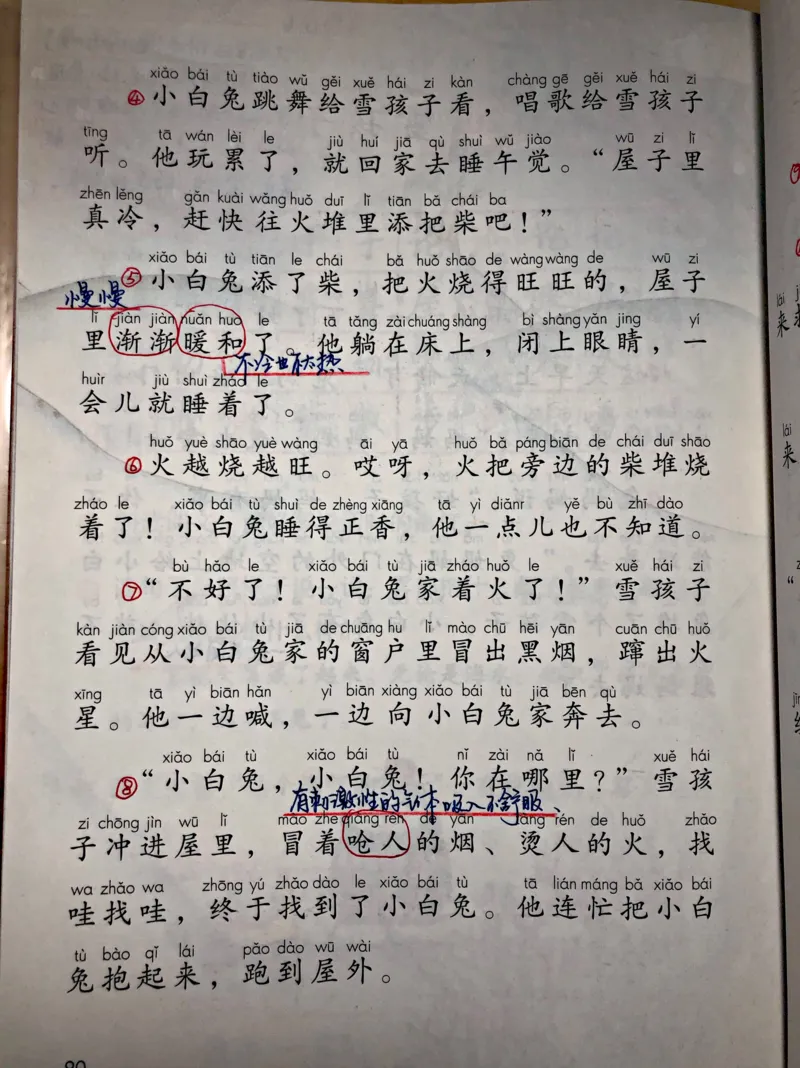 xiǎo bái tù tiào wǔ gěi xuě hái zi kàn chàng gē gěi xuě hái zi
④小白兔跳舞给雪孩子看，唱歌给雪孩子
tīng tā wán lèi le jiù huí jiā qù shuì wǔ jiào wū zi lǐ
听。他玩累了，就回家去睡午觉。“屋子里
zhēn lěng gǎn kuài wǎng huǒ duī lǐ tiān bǎ chái ba
真冷，赶快往火堆里添把柴吧！”
xiǎo bái tù tiān le chái bǎ huǒ shāo de wàng wàng de wū zi
⑤小白兔添了柴，把火烧得旺旺的，屋子
慢慢
lǐ jiàn jiàn nuǎn huo le tā tǎng zài chuáng shàng bì shàng yǎn jing yí
里渐渐暖和了。他躺在床上，闭上眼睛，一
不冷也不太热
huìr jiù shuì zháo le
会儿就睡着了。
huǒ yuè shāo yuè wàng āi yā huǒ bǎ páng biān de chái duī shāo
⑥火越烧越旺。哎呀，火把旁边的柴堆烧
zháo le xiǎo bái tù shuì de zhèng xiāng tā yì diǎnr yě bù zhī dào
着了！小白兔睡得正香，他一点儿也不知道。
bù hǎo le xiǎo bái tù jiā zháo huǒ le xuě hái zi
⑦“不好了！小白兔家着火了！”雪孩子
kàn jiàn cóng xiǎo bái tù jiā de chuāng hu lǐ mào chū hēi yān cuān chū huǒ
看见从小白兔家的窗户里冒出黑烟，蹿出火
xīng tā yì biān hǎn yì biān xiàng xiǎo bái tù jiā bēn qù
星。他一边喊，一边向小白兔家奔去。
xiǎo bái tù xiǎo bái tù nǐ zài nǎ lǐ xuě hái
⑧“小白兔，小白兔！你在哪里？”雪孩
有刺激性的气体吸入不舒服、
zi chōng jìn wū lǐ mào zhe qiàng rén de yān tàng rén de huǒ zhǎo
子冲进屋里，冒着呛人的烟、烫人的火，找
wa zhǎo wa zhōng yú zhǎo dào le xiǎo bái tù tā lián máng bǎ xiǎo bái
哇找哇，终于找到了小白兔。他连忙把小白
tù bào qǐ lái pǎo dào wū wài
兔抱起来，跑到屋外。